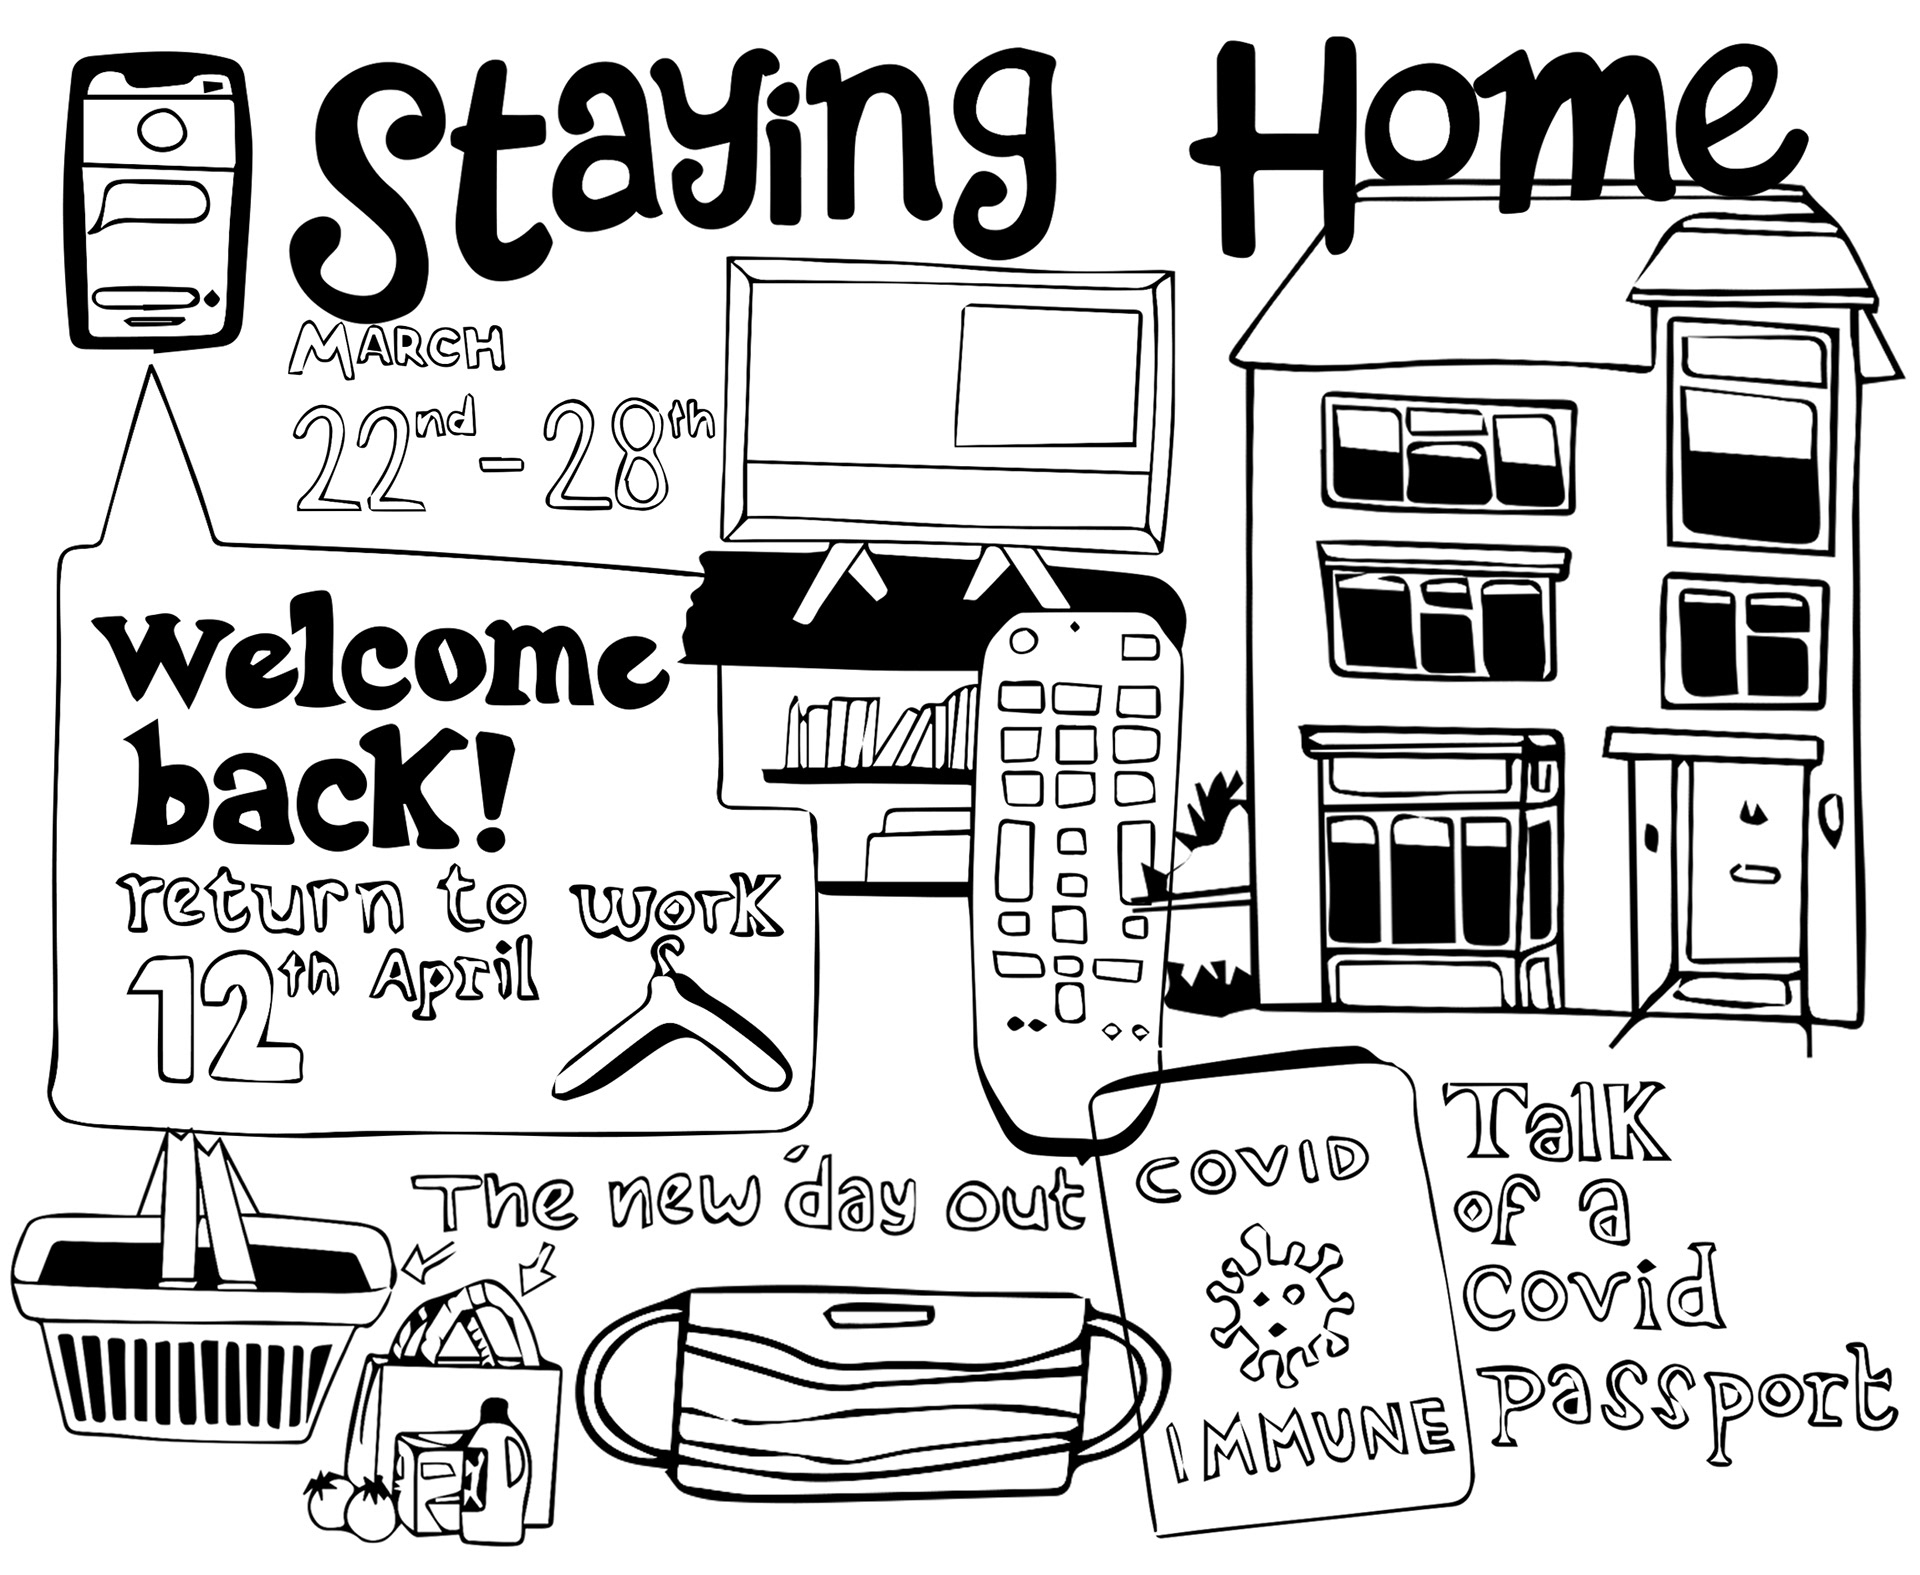 Staying Home
MARCH
22nd - 28th
Welcome
back!
return to work
12th April
The new day out
COVID
IMMUNE
Talk
of a
covid
passport